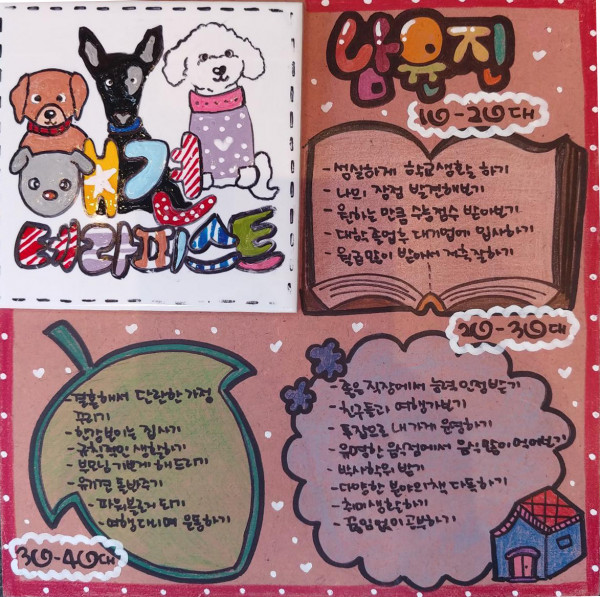 애견
테라피스트
남유진
10-20대
- 성실하게 학교생활 하기
- 나의 장점 발견해보기
- 원하는 만큼 수능점수 받아보기
- 대학졸업후 대기업에 입사하기
- 월급많이 받아서 저축잘하기
20-30대
- 좋은직장에서 능력 인정받기
- 친구들과 여행가보기
- 투잡으로 내가게 운영하기
- 유명한 음식점에서 음식많이 먹어보기
- 박사학위 받기
- 다양한 분야의 책 다독하기
- 취미생활하기
- 끊임없이 공부하기
- 결혼해서 단란한 가정
꾸리기
- 한강보이는 집사기
- 규칙적인 생활하기
- 부모님 기쁘게 해드리기
- 유기견 돌봐주기
- 파워블로거 되기
- 여행다니며 운동하기
30-40대